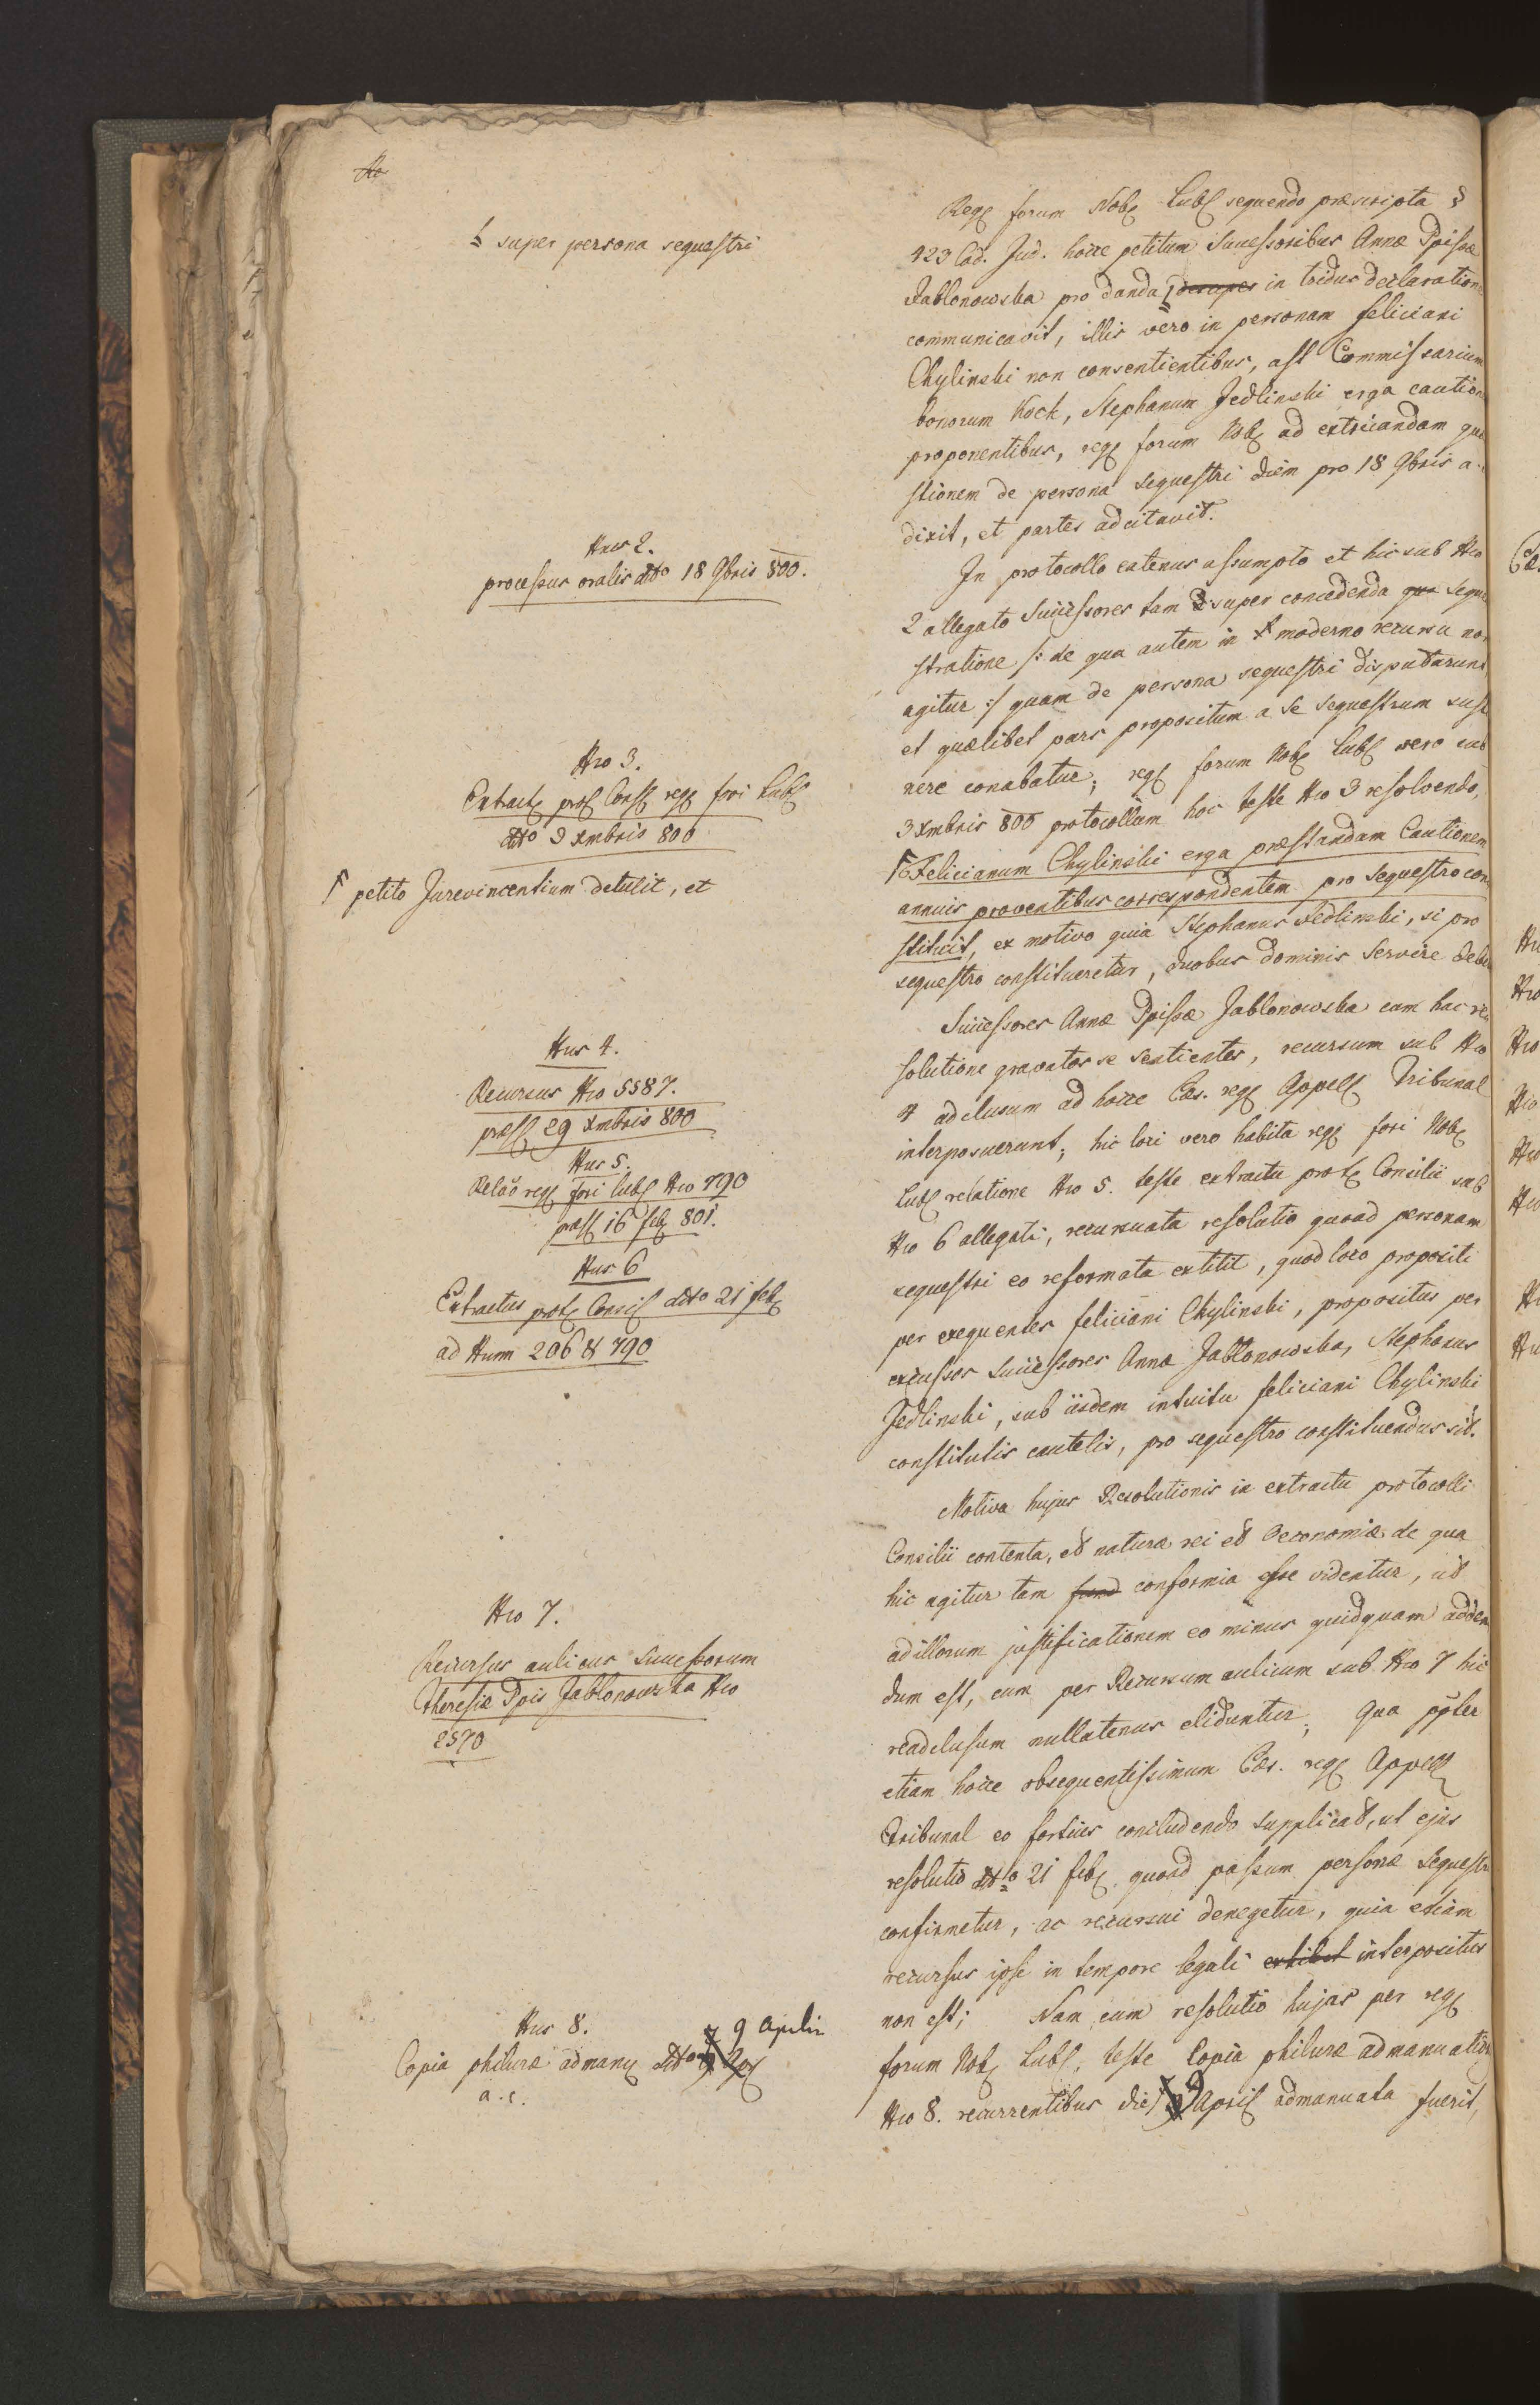 No
super persona sequestri
Nrus 2.
processus oralis ddto 18 9bris 800.
Nro 3.
Extract prot Cons reg fori Lubl
ddto 3 Xmbris 800
petito Jurevincentium detulit, et
Nrus 4.
Recursus Nro 5587.
præs 29 Xmbris 800
Nrus 5.
Relāo reg fori Lubl Nro 790
præs 16 feb 801.
Nrus 6
Extractus prot Consil ddto 21 feb
ad Num 206 & 790
Nro 7.
Recursus aulicus Successorum
Theresiæ Ppis Jablonowska Nro
2570
Nrus 8.
9 Aprilis
Copia philuræ admanu ddto
a. c.
Reg forum Nob Lubl sequendo præscripta §
423 Cod. Jud. hocce petitum Successoribus Annæ Ppissæ
Jablonowska pro danda desuper in triduo declaration
communicavit, illis vero in personam feliciani
Chylinski non consentientibus, ast Commissarium
bonorum Kock, Stephanum Jedlinski erga caution
proponentibus, reg forum Nob ad extricandam quæ
stionem de persona sequestri diem pro 18 9bris a
dixit, et partes adcitavit.
In protocollo eatenus assumpto et hic sub Nro
2 allegato Successores tam super concedenda que seque
stratione /: de qua autem in moderno recursu non
agitur :/ quam de persona sequestri disputarunt
et quælibet pars propositum a se sequestrum susti
nere conabatur; reg forum Nob Lubl vero sub
3 Xmbris 800 protocollum hoc teste Nro 3 resolvendo,
Felicianum Chylinski erga præstandam Cautionem
annuis proventibus correspondentem pro sequestro con
stituit, ex motivo quia Stephanus Jedlinski, si pro
sequestro constitueretur, duobus dominis servire debe
Successores Annæ Ppissæ Jablonowska cum hac re
solutione gravatos se sentientes, recursum sub Nro
4 adclusum ad hocce Cæs. reg Appell Tribunal
interposuerunt; hic loci vero habita reg fori Nob
Lubl relatione Nro 5. teste extractu prot Consilii sub
Nro 6 allegati, recursuata resolutio quoad personam
sequestri eo reformata extitit, quod loco propositi
per exequentes feliciani Chylinski, propositus per
excussos Successores Annæ Jablonowska, Stephanus
Jedlinski, sub iisdem intuitu feliciani Chylinski
constitutis cautelis, pro sequestro constituendus sit.
Motiva hujus Resolutionis in extractu protocolli
Consilii contenta, et naturæ rei et Oeconomiæ de qua
hic agitur tam conformia esse videntur, ut
ad illorum justificationem eo minus quidquam adden
dum est, cum per Recursum aulicum sub Nro 7 hic
readclusum nullatenus eliduntur; Qua ppter
etiam hocce obsequentissimum Cæs. reg Appell
Tribunal eo fortius concludendo supplicat, ut ejus
resolutio ddto 21 feb quoad passum personæ Sequestri
confirmetur, ac recursui denegetur, quia etiam
recursus ipse in tempore legali extitit interpositus
non est; Nam cum resolutio hujas per reg
forum Nob Lubl, teste Copia philuræ admanuation
Nro 8. recurrentibus die 9 April admanuata fuerit,